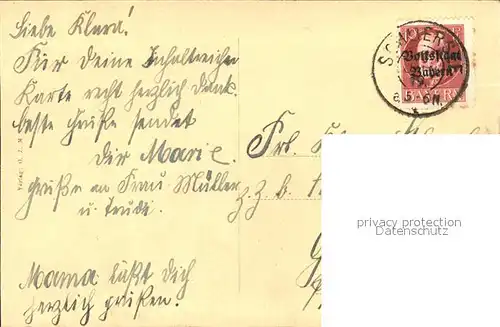 Liebe Klara!
Für deine Inhaltreiche
Karte recht herzlich dank.
beste Grüße sendet
Dir Marie.
grüße an Frau Müller
u. Trudi.
Mama läßt Dich
herzlich grüßen.
Frl.
z. z. b.
Volksstaat
Bayern
BAYERN
privacy protection
Datenschutz